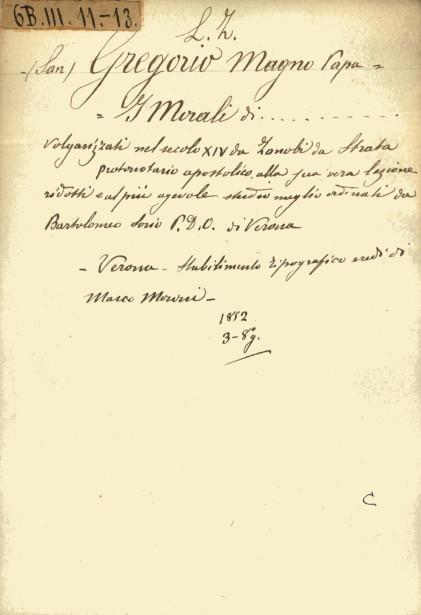 6B.III.11.-13.
L. Z.
- (San) Gregorio Magno Papa =
= I Morali di..........
volgarizzati nel secolo XIV da Zanobi da Strata
protonotario apostolico, alla sua vera lezione
ridotti e al più agevole studio meglio ordinati da
Bartolomeo Sorio P.D.O. di Verona
- Verona - Stabilimento tipografico eredi di
Marco Moroni -
1852
3-8º.
C